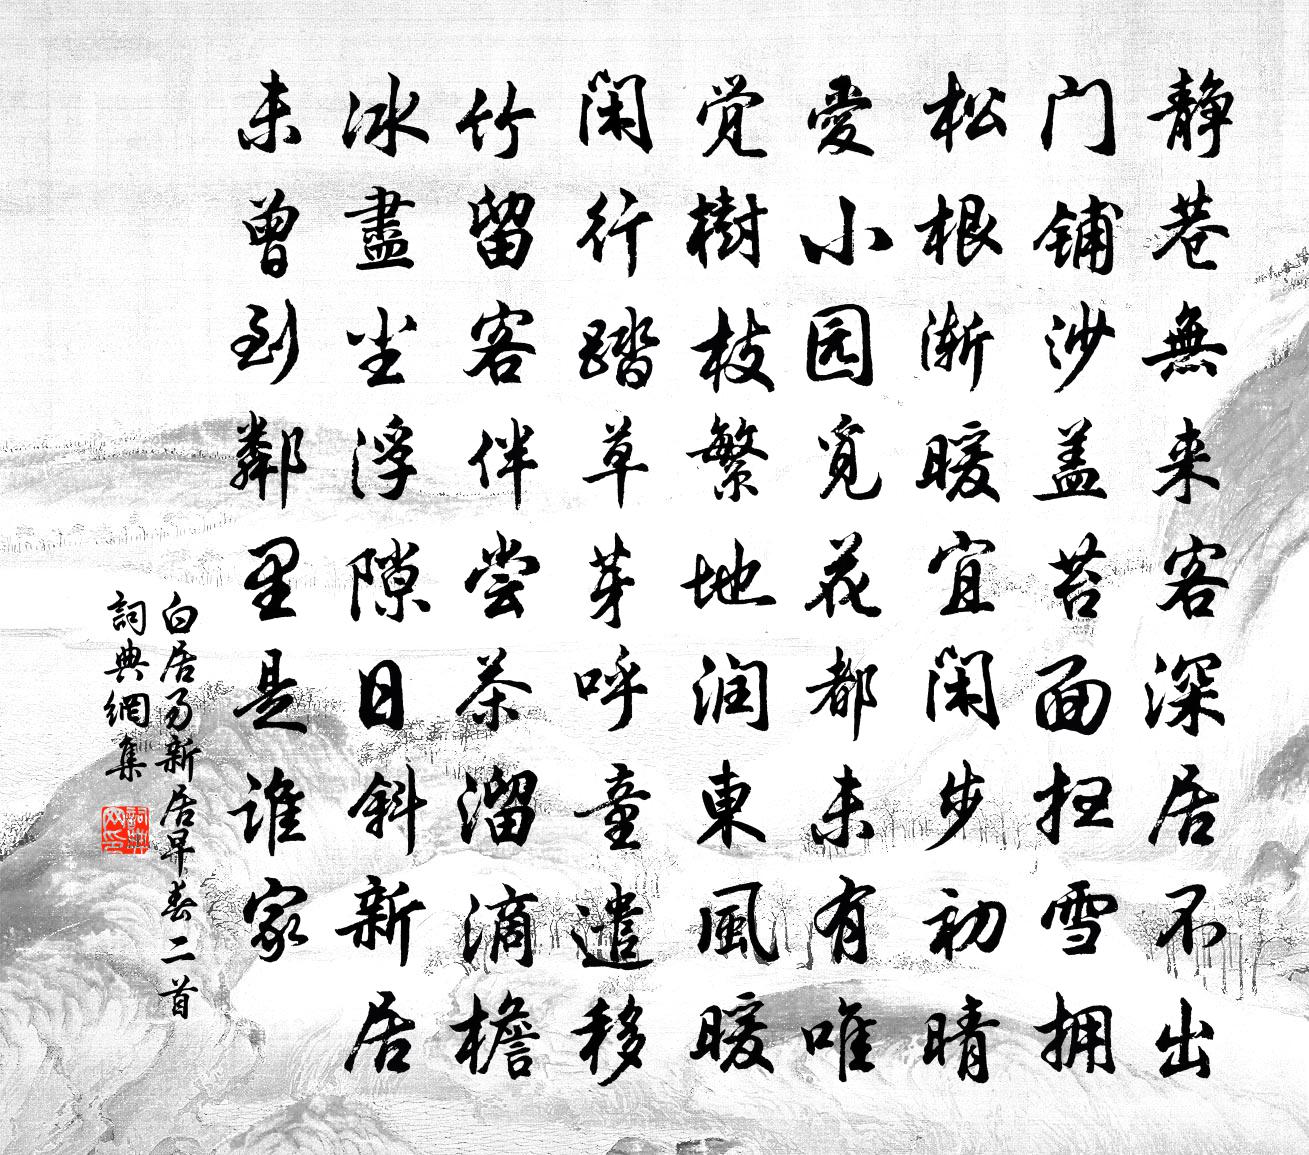 静巷無来客深居不出
门铺沙盖苔面扫雪拥
松根渐暖宜闲步初晴
愛小园觅花都未有唯
觉樹枝繁地润東風暖
闲行踏草芽呼童遣移
竹留客伴尝茶溜滴檐
冰盡尘浮隙日斜新居
未曾到鄰里是谁家
白居易新居早春二首
詞典網集